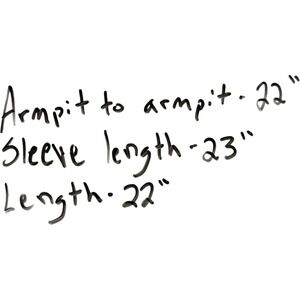 Armpit to armpit - 22"
Sleeve length - 23"
Length - 22"